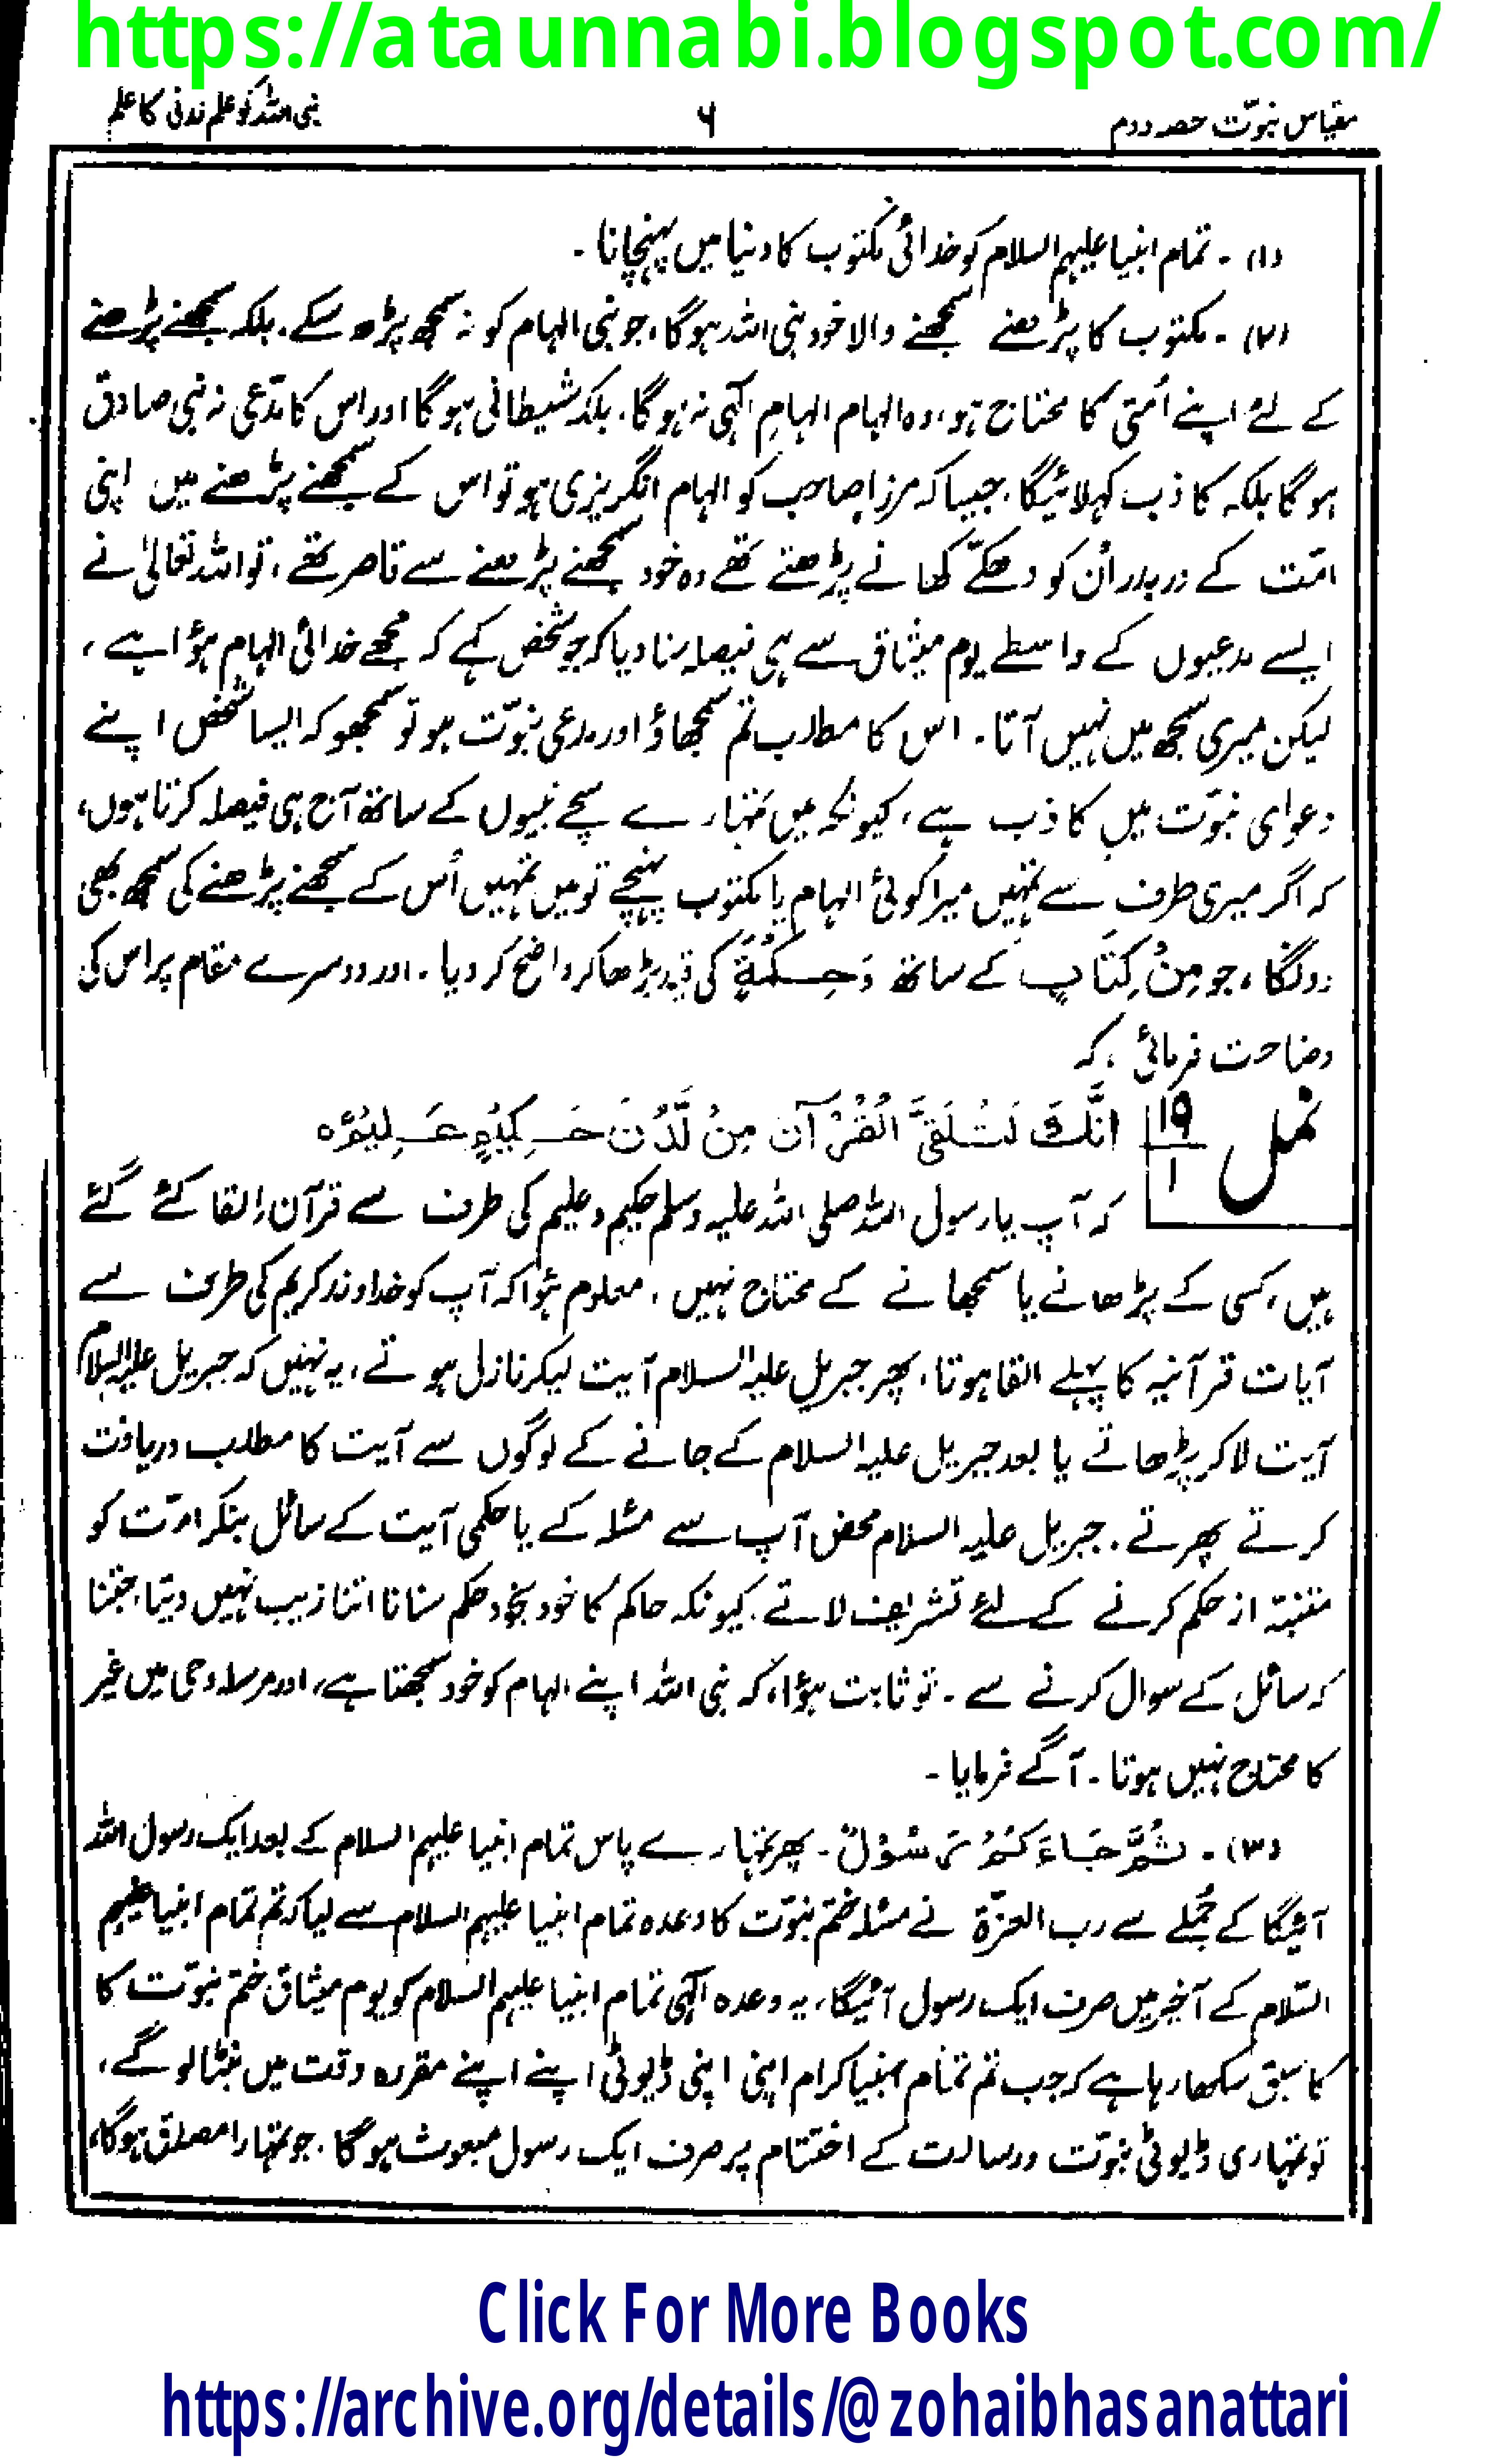 https://ataunnabi.blogspot.com/
مقیاس نبوّت حصہ دوم
۶
نبی اللہ کو علم لدنی کا علم
(۱) ۔ تمام انبیا علیہم السلام کو خدائی مکتوب کا دنیا میں پہنچانا ۔
(۲) ۔ مکتوب کا پڑھنے سمجھنے والا خود نبی اللہ ہو گا ، جو نبی الہام کو نہ سمجھ پڑھ سکے ۔ بلکہ سمجھنے پڑھنے
کے لئے اپنے اُمتی کا محتاج ہو ، وہ الہام الہامِ الٰہی نہ ہو گا ، بلکہ شیطانی ہو گا اور اس کا مدّعی نہ نبی صادق
ہو گا بلکہ کاذب کہلائیگا ، جیسا کہ مرزا صاحب کو الہام انگریزی ہو تو اس کے سمجھنے پڑھنے میں اپنی
امّت کے در بدر اُن کو دھکّے کھانے پڑھتے تھے وہ خود سمجھنے پڑھنے سے قاصر تھے ، تو اللہ تعالیٰ نے
ایسے مدعیوں کے واسطے یوم میثاق سے ہی فیصلہ سنا دیا کہ جو شخص کہے کہ مجھے خدائی الہام ہؤا ہے ،
لیکن میری سمجھ میں نہیں آتا ۔ اس کا مطلب تم سمجھاؤ اور مدعی نبوّت ہو تو سمجھو کہ ایسا شخص اپنے
دعوای نبوّت میں کاذب ہے ، کیونکہ میں تمہارے سچے نبیوں کے ساتھ آج ہی فیصلہ کرتا ہوں ،
کہ اگر میری طرف سے تمہیں میرا کوئی الہام یا مکتوب پہنچے تو میں تمہیں اُس کے سمجھنے پڑھنے کی سمجھ بھی
دونگا ، جو مِنْ کِتَابٍ کے ساتھ وَحِکْمَةٍ کی قید بڑھا کر واضح کر دیا ۔ اور دوسرے مقام پر اس کی
وضاحت فرمائی ، کہ
نمل ۱۹/۱ اِنَّكَ لَتُلَقَّى الْقُرْآنَ مِنْ لَّدُنْ حَكِيْمٍ عَلِيْمٍ ہ
کہ آپ یا رسول اللہ صلی اللہ علیہ وسلم حکیم و علیم کی طرف سے قرآن اِلقا کئے گئے
ہیں ، کسی کے پڑھانے یا سمجھانے کے محتاج نہیں ، معلوم ہؤا کہ آپ کو خداوند کریم کی طرف سے
آیات قرآنیہ کا پہلے القا ہوتا ، پھر جبریل علیہ السلام آیت لیکر نازل ہوتے ، یہ نہیں کہ جبریل علیہ السلام
آیت لا کر پڑھاتے یا بعد جبریل علیہ السلام کے جانے کے لوگوں سے آیت کا مطلب دریافت
کرتے پھرتے ۔ جبریل علیہ السلام محض آپ سے مسٔلہ کے یا حکمی آیت کے سائل بنکر امّت کو
متنبہ از حکم کرنے کے لئے تشریف لاتے ، کیونکہ حاکم کا خود بخود حکم سنانا اتنا زیب نہیں دیتا ، جتنا
کہ سائل کے سوال کرنے سے ۔ تو ثابت ہؤا ، کہ نبی اللہ اپنے الہام کو خود سمجھتا ہے ، اور مرسلہ وحی میں غیر
کا محتاج نہیں ہوتا ۔ آگے فرمایا ۔
(۳) ۔ ثُمَّ جَاءَ كُمْ رَسُوْلٌ ۔ پھر تمہارے پاس تمام انبیا علیہم السلام کے بعد ایک رسول اللہ
آئیگا کے جُملے سے رب العزّۃ نے مسٔلہ ختم نبوّت کا وعدہ تمام انبیا علیہم السلام سے لیا کہ تم تمام انبیا علیہم
السّلام کے آخیر میں صرف ایک رسول آئیگا ، یہ وعدہ الٰہی تمام انبیا علیہم السلام کو یوم میثاق ختم نبوّت کا
کا سبق سکھا رہا ہے کہ جب تم تمام انبیا کرام اپنی اپنی ڈیوٹی اپنے اپنے مقررہ وقت میں نبٹا لو گے ،
تو تمہاری ڈیوٹی نبوّت و رسالت کے اختتام پر صرف ایک رسول مبعوث ہو گا ، جو تمہارا مصدق ہو گا ،
Click For More Books
https://archive.org/details/@zohaibhasanattari